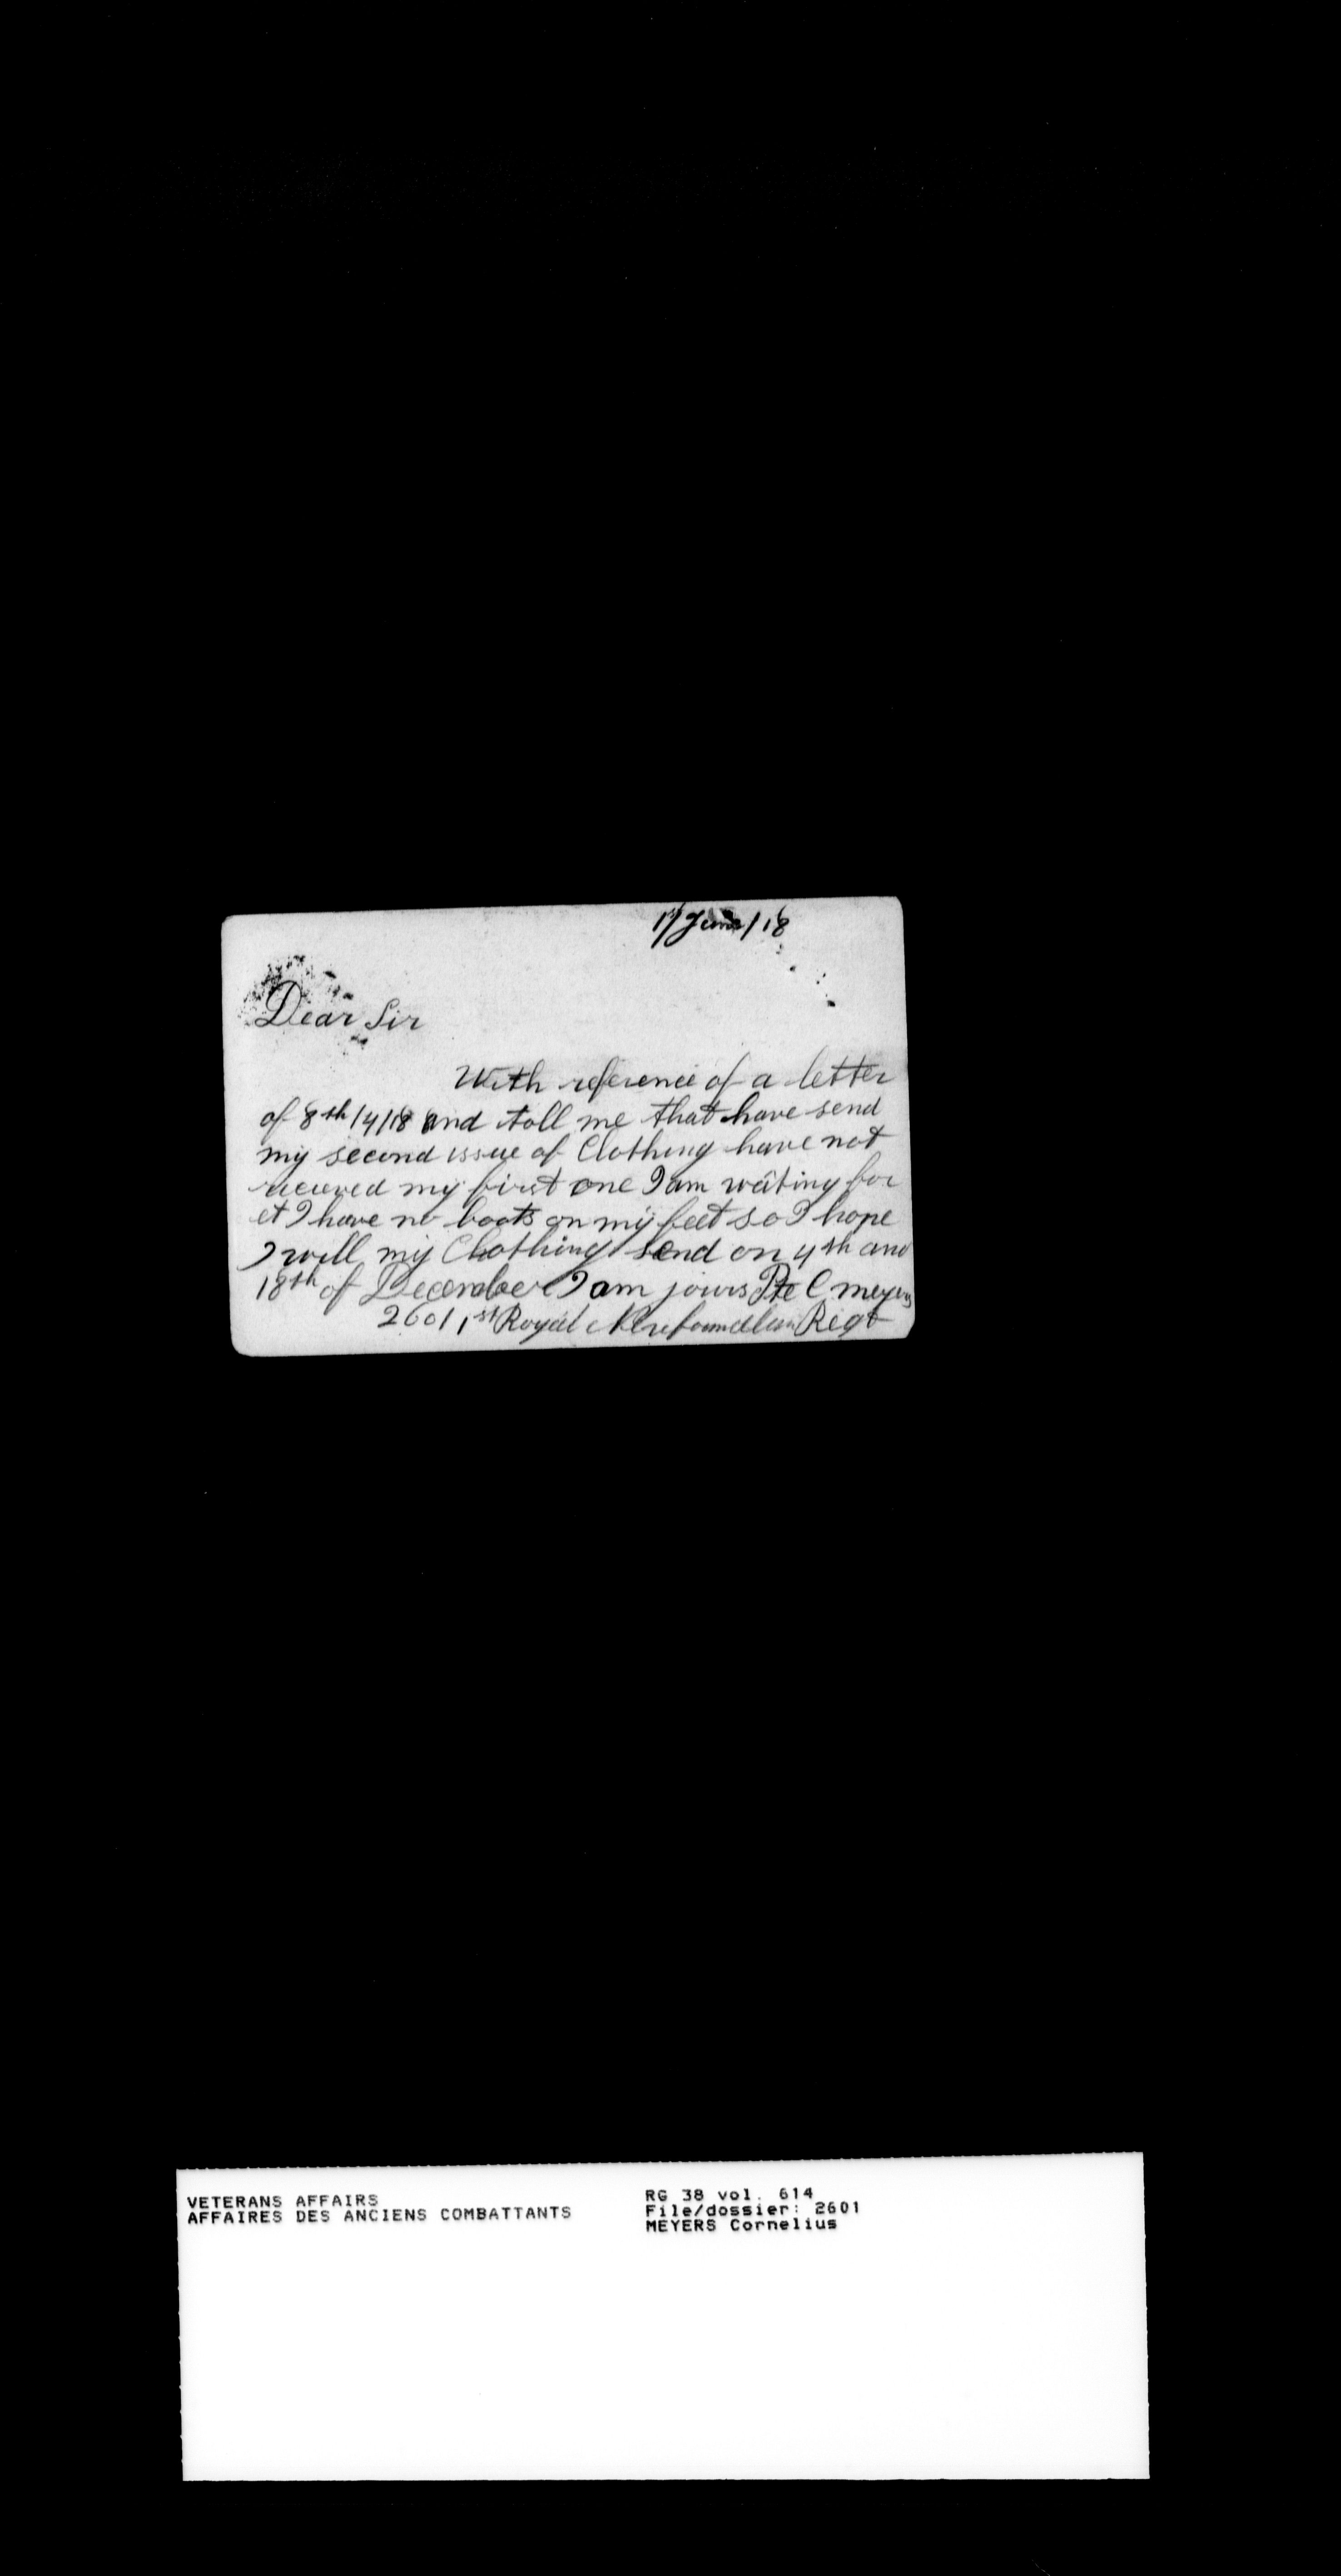 1st/June/18
Dear Sir
With reference of a letter
of 8th/4/18 and toll me that have send
my second issue of Clothing have not
recieved my first one I am waiting for
et I have no boots on my feet so I hope
I will my Clothing send on 4th and
18th of December I am jours Pte C meyers
2601 1st Royal Newfoundlan Regt
VETERANS AFFAIRS
AFFAIRES DES ANCIENS COMBATTANTS
RG 38 vol. 614
File/dossier: 2601
MEYERS Cornelius